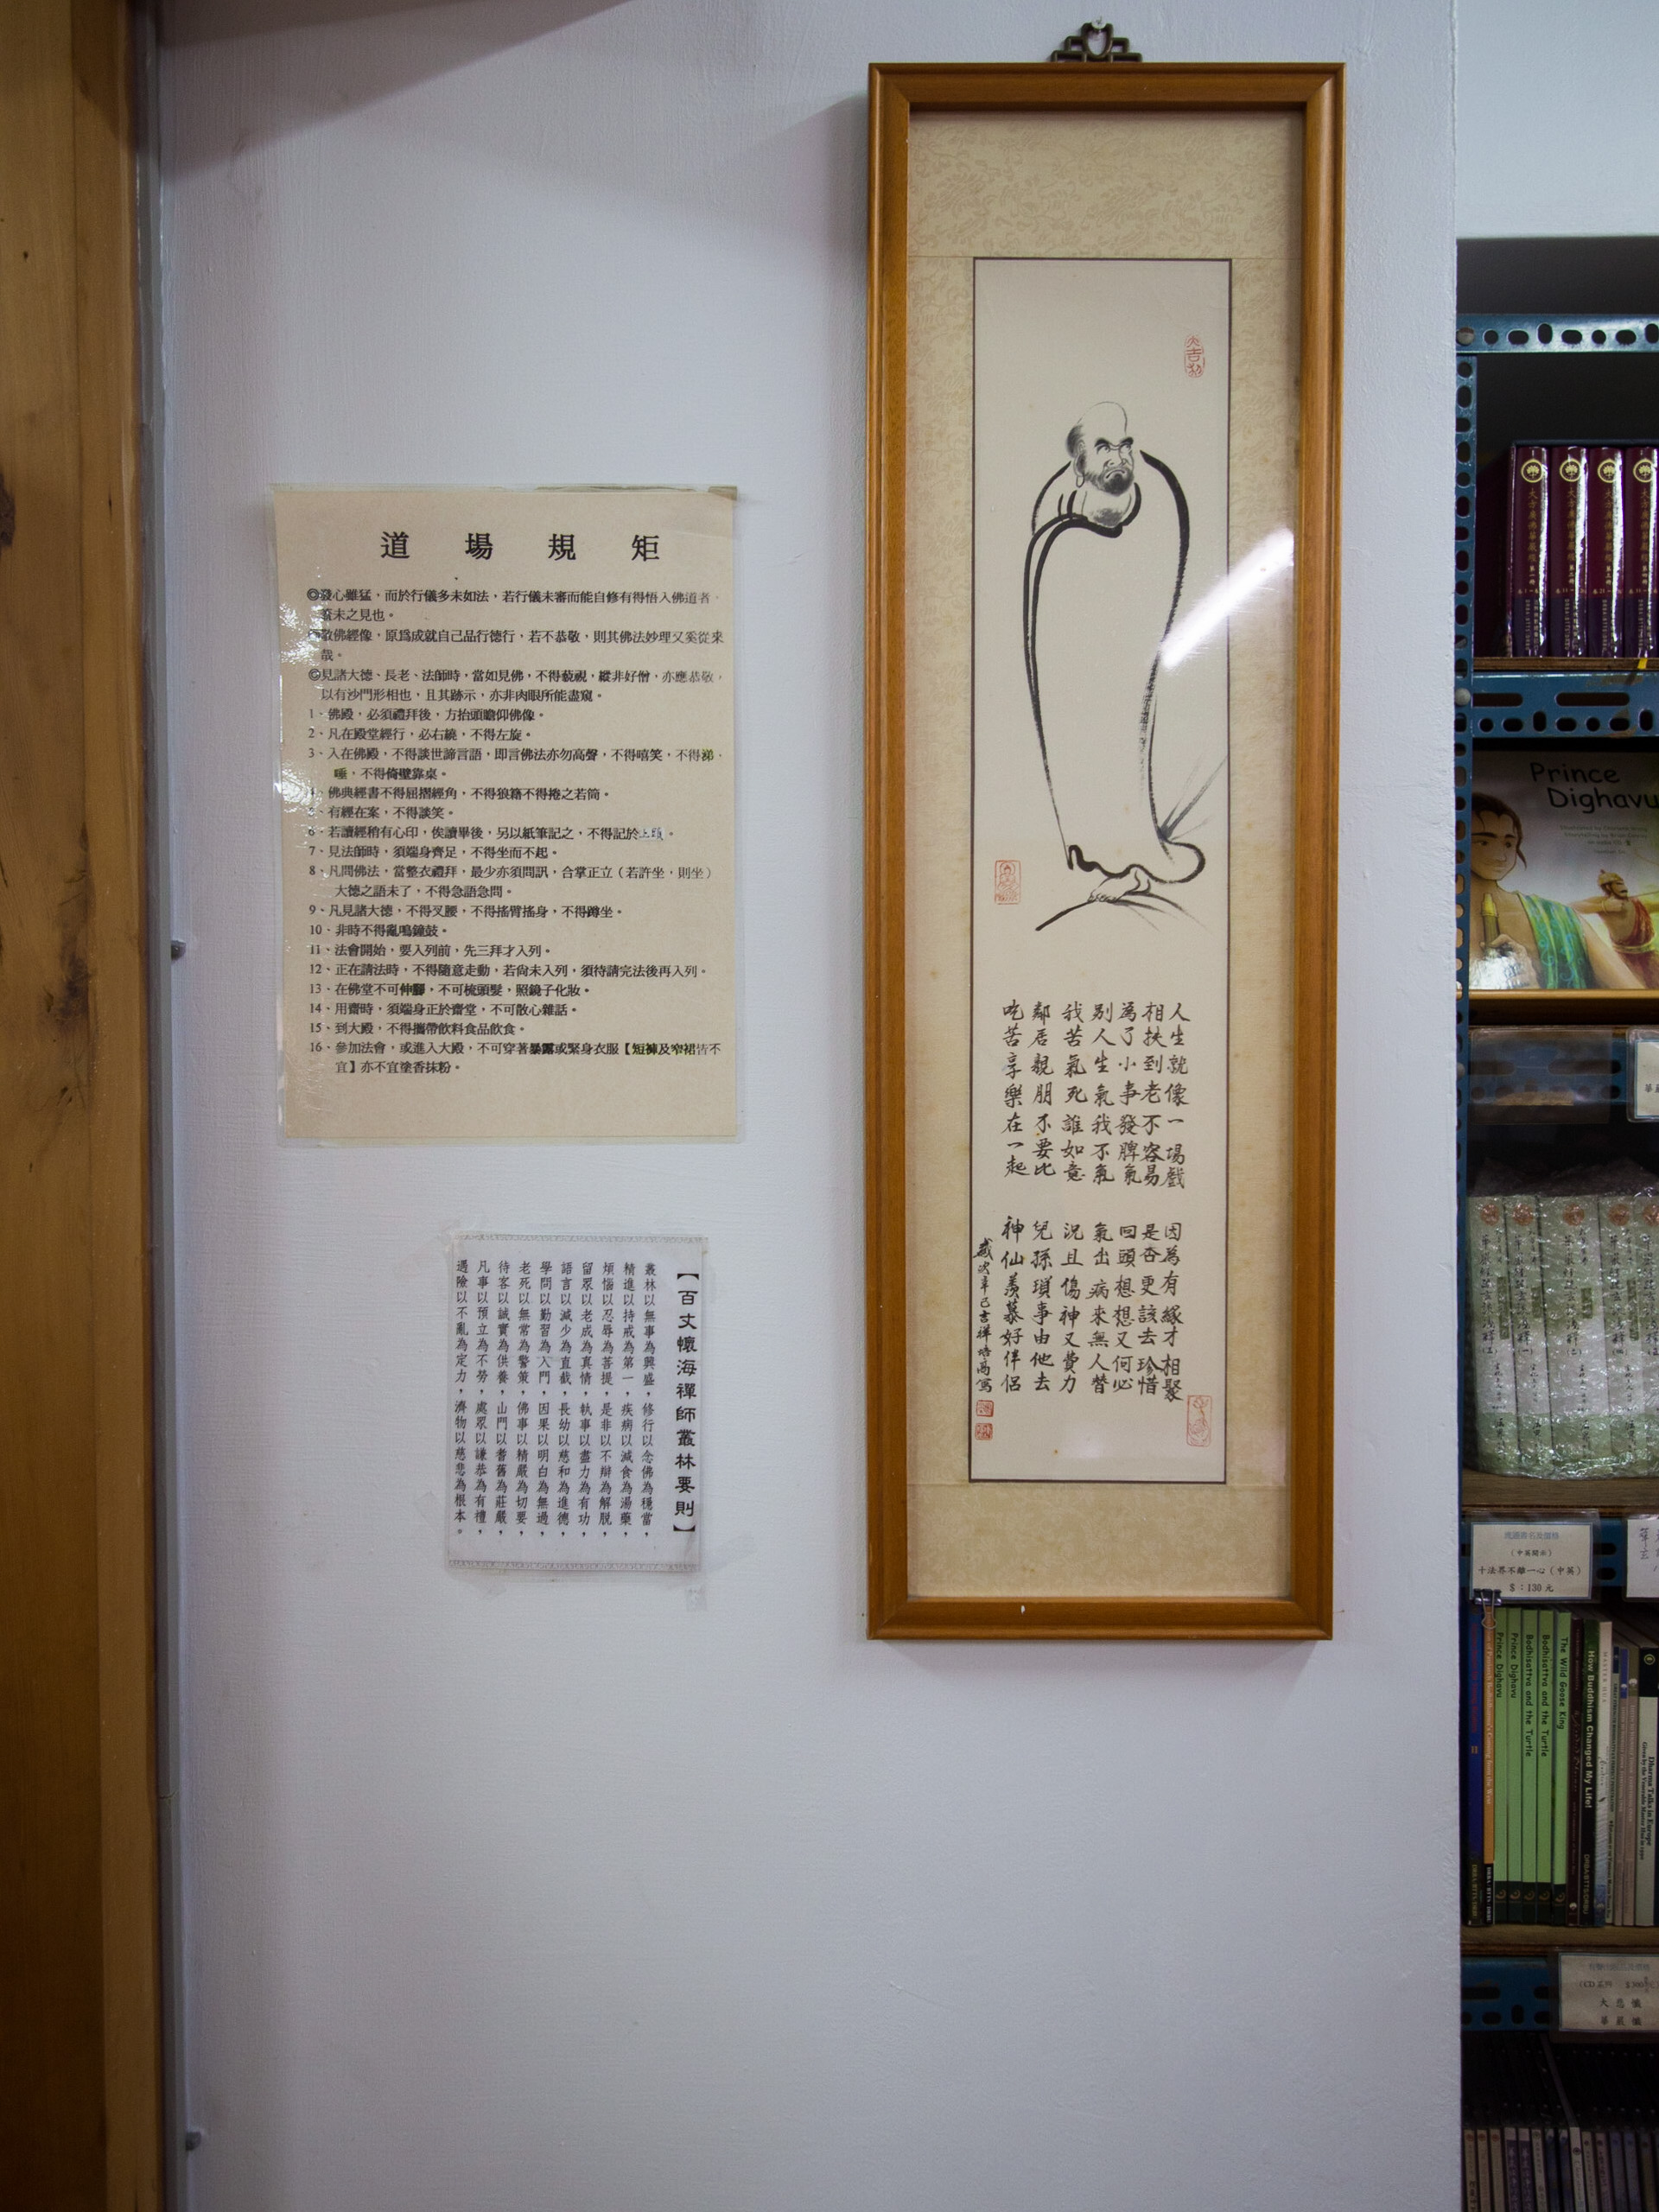 道場規矩
◎發心雖猛，而於行儀多未如法，若行儀未審而能自修有得悟入佛道者。
蓋未之見也。
◎敬佛經像，原爲成就自己品行德行，若不恭敬，則其佛法妙理又奚從來
哉。
◎見諸大德、長老、法師時，當如見佛，不得藐視，縱非好僧，亦應恭敬，
以有沙門形相也，且其跡示，亦非肉眼所能盡窺。
1、佛殿，必須禮拜後，方抬頭瞻仰佛像。
2、凡在殿堂經行，必右繞，不得左旋。
3、入在佛殿，不得談世諦言語，即言佛法亦勿高聲，不得嘻笑，不得涕、
唾，不得倚壁靠桌。
4、佛典經書不得屈摺經角，不得狼籍不得捲之若筒。
5、有經在案，不得談笑。
6、若讀經稍有心印，俟讀畢後，另以紙筆記之，不得記於上頭。
7、見法師時，須端身齊足，不得坐而不起。
8、凡問佛法，當整衣禮拜，最少亦須問訊，合掌正立（若許坐，則坐）
大德之語未了，不得急語急問。
9、凡見諸大德，不得叉腰，不得搖臂搖身，不得蹲坐。
10、非時不得亂鳴鐘鼓。
11、法會開始，要入列前，先三拜才入列。
12、正在請法時，不得隨意走動，若尙未入列，須待請完法後再入列。
13、在佛堂不可伸腳，不可梳頭髮，照鏡子化妝。
14、用齋時，須端身正於齋堂，不可散心雜話。
15、到大殿，不得攜帶飲料食品飲食。
16、參加法會，或進入大殿，不可穿著暴露或緊身衣服【短褲及窄裙皆不
宜】亦不宜塗香抹粉。
【百丈懷海禪師叢林要則】
叢林以無事為興盛，修行以念佛為穩當，
精進以持戒為第一，疾病以減食為湯藥，
煩惱以忍辱為菩提，是非以不辯為解脫，
留眾以老成為真情，執事以盡力為有功，
語言以減少為直截，長幼以慈和為進德，
學問以勤習為入門，因果以明白為無過，
老死以無常為警策，佛事以精嚴為切要，
待客以誠實為供養，山門以耆舊為莊嚴，
凡事以預立為不勞，處眾以謙恭為有禮，
遇險以不亂為定力，濟物以慈悲為根本。
人生就像一場戲 因為有緣才相聚
相扶到老不容易 是否更該去珍惜
為了小事發脾氣 回頭想想又何必
別人生氣我不氣 氣出病來無人替
我苦氣死誰如意 況且傷神又費力
鄰居親朋不要比 兒孫瑣事由他去
吃苦享樂在一起 神仙羨慕好伴侶
歲次辛巳吉祥培高寫
Prince
Dighavu
十法界不離一心（中英）
$：130元
Prince Dighavu
Prince Dighavu
Bodhisattva and the Turtle
Bodhisattva and the Turtle
The Wild Goose King
How Buddhism Changed My Life!
Dharma Talks in Europe
大悲懺
華嚴懺